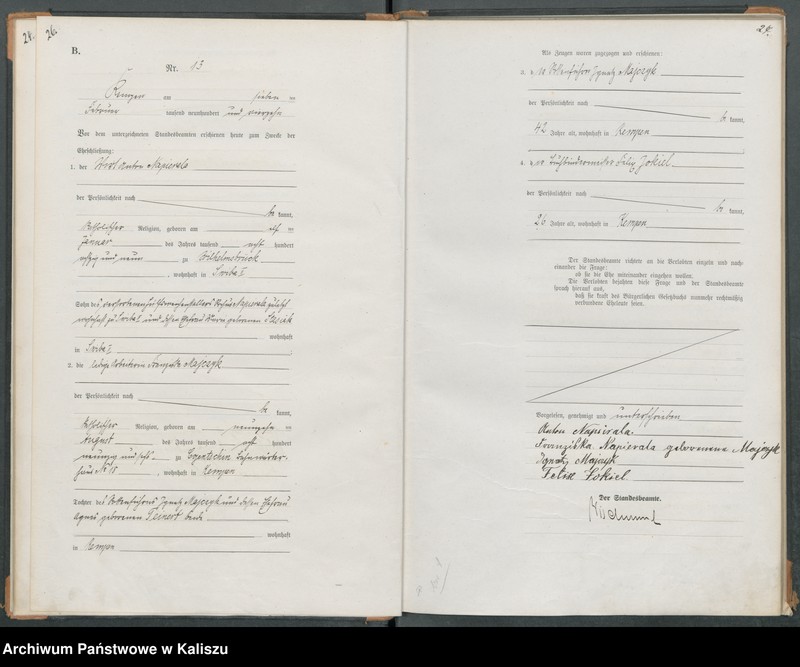 24.
26.
B.
Nr. 13
Kempen am sieben ten
Februar tausend neunhundert und vierzehn
Vor dem unterzeichneten Standesbeamten erschienen heute zum Zwecke der
Eheschließung:
1. der Wirt Anton Napierala
der Persönlichkeit nach
be kannt,
katholischer Religion, geboren am elf ten
Januar des Jahres tausend acht hundert
achtzig und neun zu Wilhelmsbrück
, wohnhaft in Swiba
Sohn des verstorbenen
wohnhaft zu Swiba und dessen Ehefrau geborenen
wohnhaft
in Swiba
2. die ledige Arbeiterin Franziska Majczyk
der Persönlichkeit nach
be kannt,
katholischer Religion, geboren am neunzehn ten
August des Jahres tausend acht hundert
neunzig und sechs zu Opatschin Bahnwärter-
haus No 15, wohnhaft in Kempen
Tochter des Rottenführers Ignatz Majczyk und dessen Ehefrau
Agnes geborenen Teinert beide
wohnhaft
in Kempen
24.
Als Zeugen waren zugezogen und erschienen:
3. der Rottenführer Ignatz Majczyk
der Persönlichkeit nach
be kannt,
42 Jahre alt, wohnhaft in Kempen
4. der Buchbindermeister Felix Jokiel
der Persönlichkeit nach
be kannt,
26 Jahre alt, wohnhaft in Kempen
Der Standesbeamte richtete an die Verlobten einzeln und nach-
einander die Frage:
ob sie die Ehe miteinander eingehen wollen.
Die Verlobten bejahten diese Frage und der Standesbeamte
sprach hierauf aus,
daß sie kraft des Bürgerlichen Gesetzbuchs nunmehr rechtmäßig
verbundene Eheleute seien.
Vorgelesen, genehmigt und unterschrieben
Anton Napierala.
Franziska Napierala geborene Majczyk
Ignatz Majczyk
Felix Jokiel
Der Standesbeamte.
Archiwum Państwowe w Kaliszu